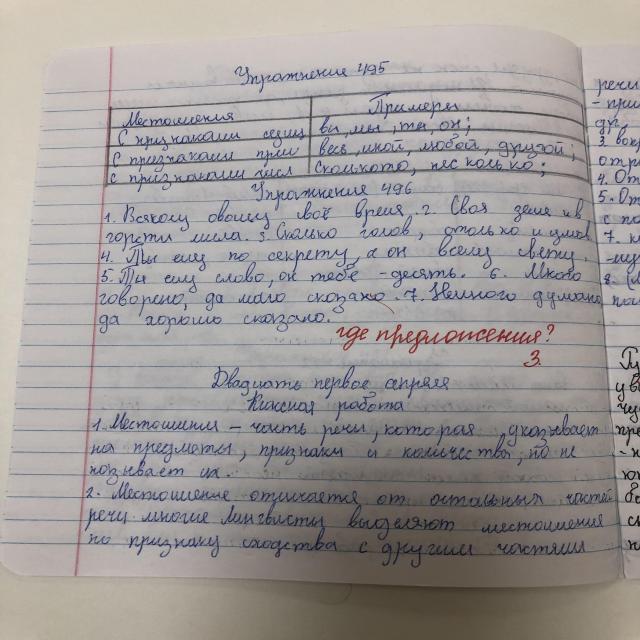 Упражнение 495
Местоимения Примеры
С признаками сущ вы, мы, ты, он;
С признаками прил весь, иной, любой, другой;
с признаками числ сколького, несколько;
Упражнение 496
1. Всякому овощу своё время. 2. Своя земля и в
горсти мила. 3. Сколько голов, столько и умов.
4. Ты ему по секрету, а он всему свету.
5. Ты ему слово, он тебе - десять. 6. Много
говорено, да мало сказано. 7. Немного думано,
да хорошо сказано.
где предложения?
3.
Двадцать первое апреля
Классная работа
1. Местоимения – часть речи, которая указывает
на предметы, признаки и количества, но не
называет их.
2. Местоимение отличается от остальных частей
речи многие лингвисты выделяют местоимения
по признаку сходства с другими частями
речи
- при
др.
3. вокр
4. От
5. От
с по
7. к